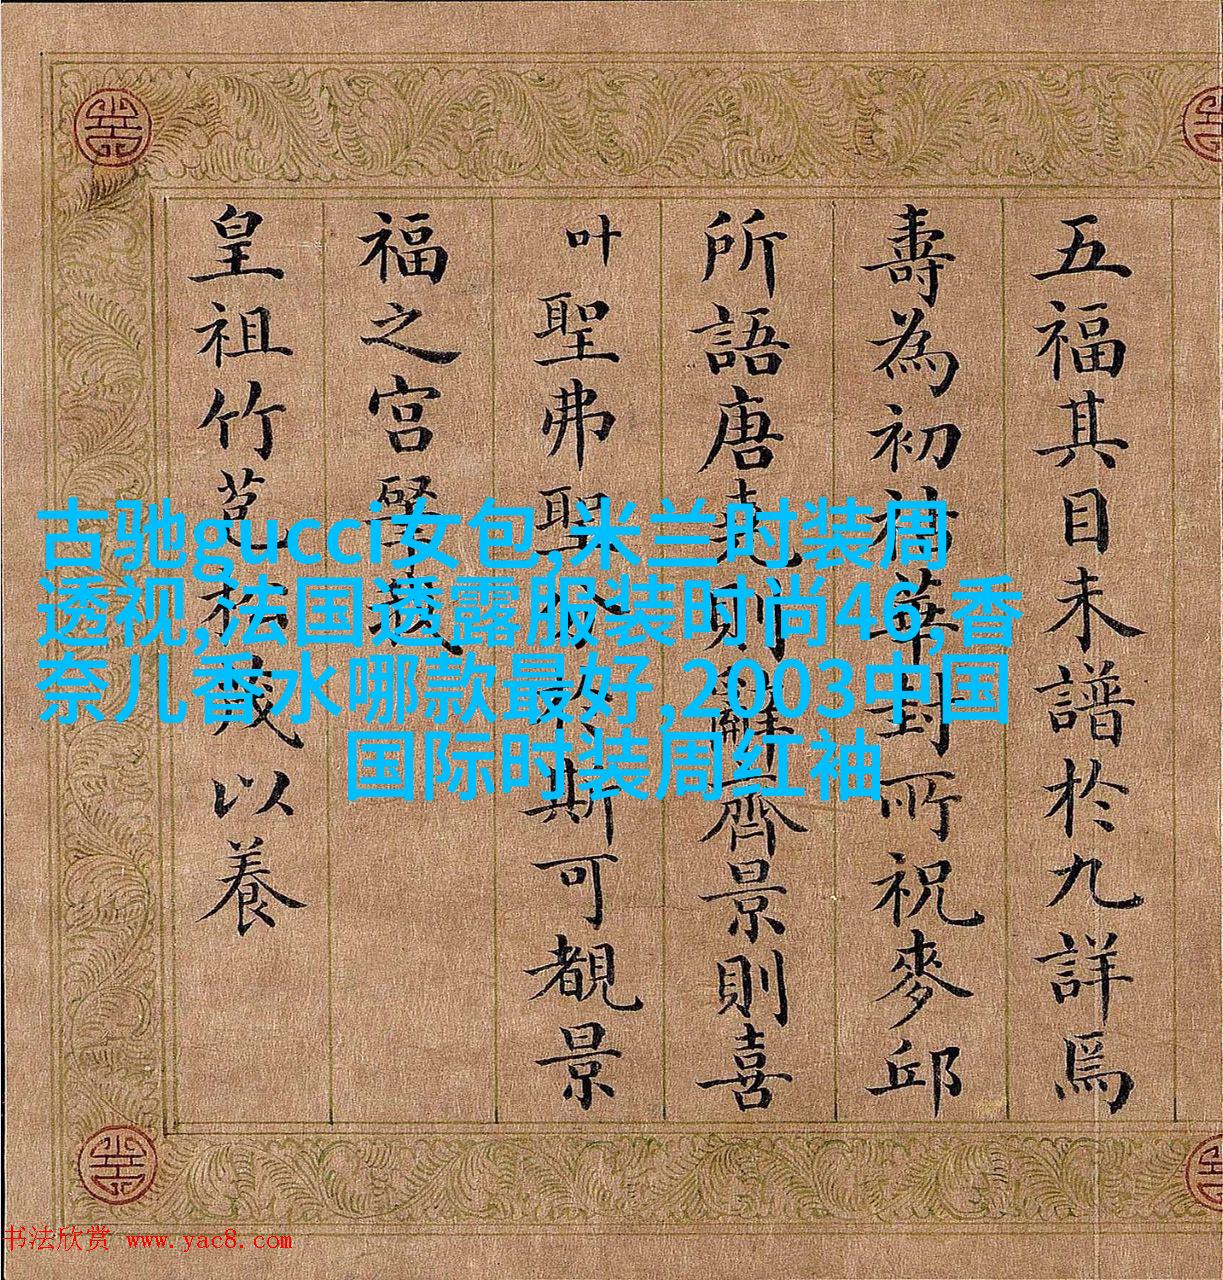 五福其目未譜於九詳爲
壽為初祥華封所祝麥邱
所語唐堯則辭齊景則喜
叶聖弗聖於斯可覩景
福之宮
皇祖竹苞松茂以養
古驰gucci女包,米兰时装周
透视,法国透露服装时尚46,香
奈儿香水哪款最好,2003中国
国际时装周红袖
书法欣赏 www.yac8.com